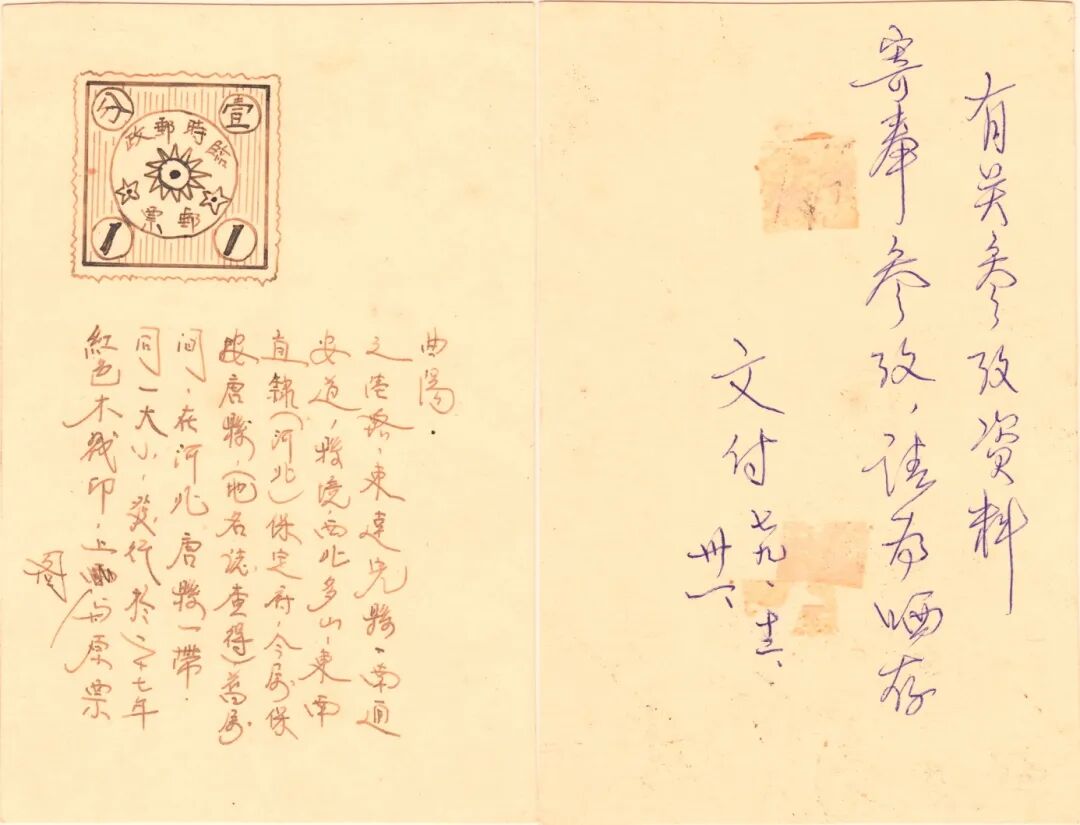 分 壹
臨時郵政
郵票
1 1
紅色木戳印,上图与原票
同一大小,發行於二十七年
间,在河北唐縣一帶.
按唐縣,(地名誌查得)舊屬
直隸(河北)保定府,今屬保
安道,縣境西北多山,東南
之路,東達完縣,南通
曲陽.
有关参攷资料
寄奉参攷,请為哂存
文付 七九、十二、
卅一、